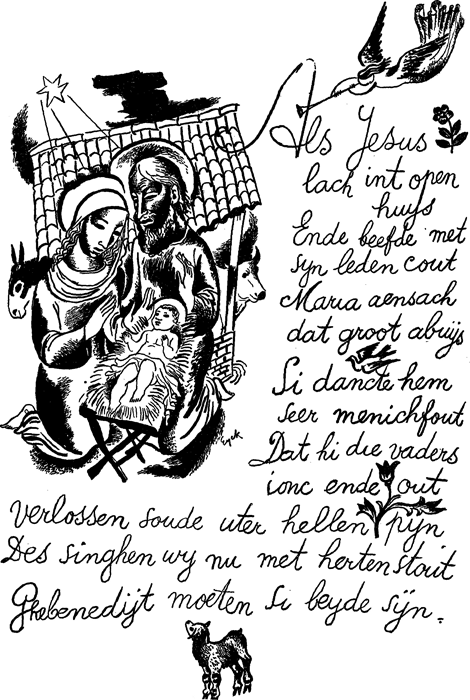 Als Jesus
lach int open
huys
Ende beefde met
syn leden cout
Maria aensach
dat groot abuijs
Si dancte hem
seer menichfout
Dat hi die vaders
ionc ende out
Verlossen soude uter hellen pijn
Des singhen wy nu met herten stout
Ghebenedijt moeten si beyde sijn.